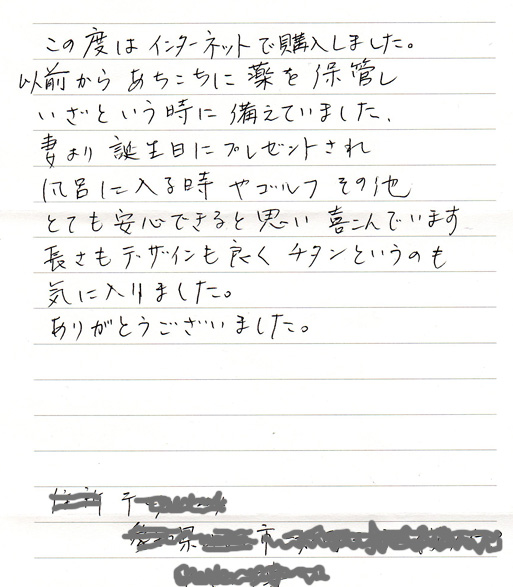 この度はインターネットで購入しました。
以前からあちこちに薬を保管し
いざという時に備えていました、
妻より誕生日にプレゼントされ
風呂に入る時やゴルフその他
とても安心できると思い喜こんでいます
長さもデザインも良くチタンというのも
気に入りました。
ありがとうございました。
住所 〒
県 市